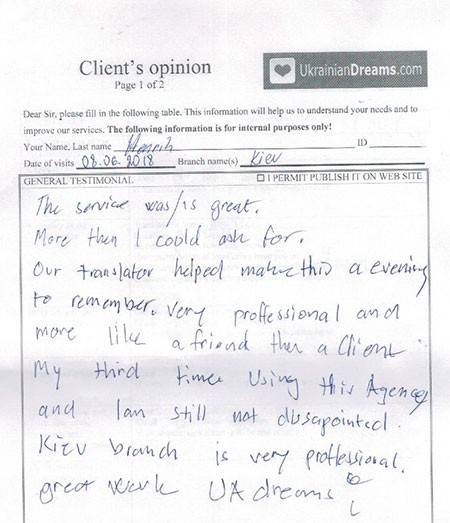 Client's opinion
Page 1 of 2
UkrainianDreams.com
Dear Sir, please fill in the following table. This information will help us to understand your needs and to
improve our services. The following information is for internal purposes only!
Your Name, Last name Henrik ID
Date of visits 08.06.2018 Branch name(s) Kiev
GENERAL TESTIMONIAL ☐ I PERMIT PUBLISH IT ON WEB SITE
The service was/is great.
More then I could ask for.
Our translator helped make this a evening
to remember. very proffessional and
more like a friend then a Client.
My third time using this Agency
and Iam still not dissapointed.
Kiev branch is very proffessional.
great work UA dreams